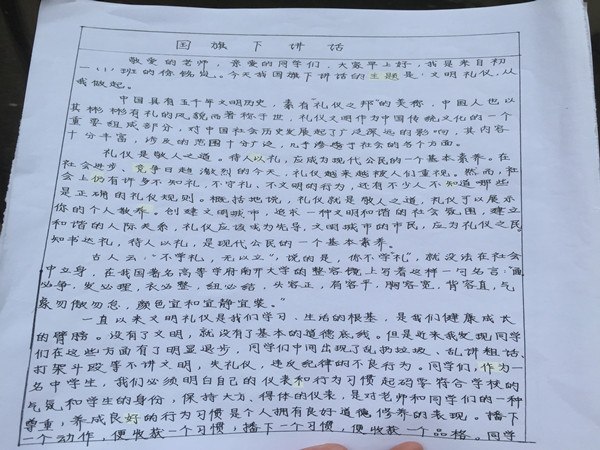 国旗下讲话
敬爱的老师，亲爱的同学们，大家早上好，我是来自初
一（1）班的徐铭岚。今天我国旗下讲话的主题是，文明礼仪，从
我做起。
中国具有五千年文明历史，素有“礼仪之邦”的美称，中国人也以
其彬彬有礼的风貌而著称于世，礼仪文明作为中国传统文化的一个
重要组成部分，对中国社会历史发展起了广泛深远的影响，其内容
十分丰富，涉及的范围十分广泛，几乎渗透于社会的各个方面。
礼仪是敬人之道。待人以礼，应成为现代公民的一个基本素养。在
社会进步、竞争日趋激烈的今天，礼仪越来越被人们重视。然而，社
会上仍有许多不知礼，不守礼、不文明的行为，还有不少人不知道哪些
是正确的礼仪规则。概括地说，礼仪就是敬人之道，礼仪可以展示
你的个人教养。创建文明城市，追求一种文明和谐的社会氛围，建立
和谐的人际关系，礼仪应该成为先导，文明城市的市民，应为礼仪之民
知书达礼，待人以礼，是现代公民的一个基本素养。
古人云，“不学礼，无以立”，说的是，你不学礼”，就没法在社会
中立身，在我国著名高等学府南开大学的整容镜上写着这样一句名言：“面
必净，发必理，衣必整，纽必结，头容正，肩容平，胸容宽，背容直，气
象勿傲勿怠，颜色宜和宜静宜装。”
一直以来文明礼仪是我们学习、生活的根基，是我们健康成长
的臂膀。没有了文明，就没有了基本的道德底线。但是近来我发现同学
们在这些方面有了明显退步，同学们中间出现了乱扔垃圾、乱讲粗话、
打架斗殴等不讲文明，失礼仪，违反纪律的不良行为。同学们，作为一
名中学生，我们必须明白自己的仪表和行为习惯起码要符合学校的
气氛和学生的身份，保持大方、得体的仪表，是对老师和同学们的一种
尊重，养成良好的行为习惯是个人拥有良好道德修养的表现。播下
一个动作，便收获一个习惯；播下一个习惯，便收获一个品格。同学